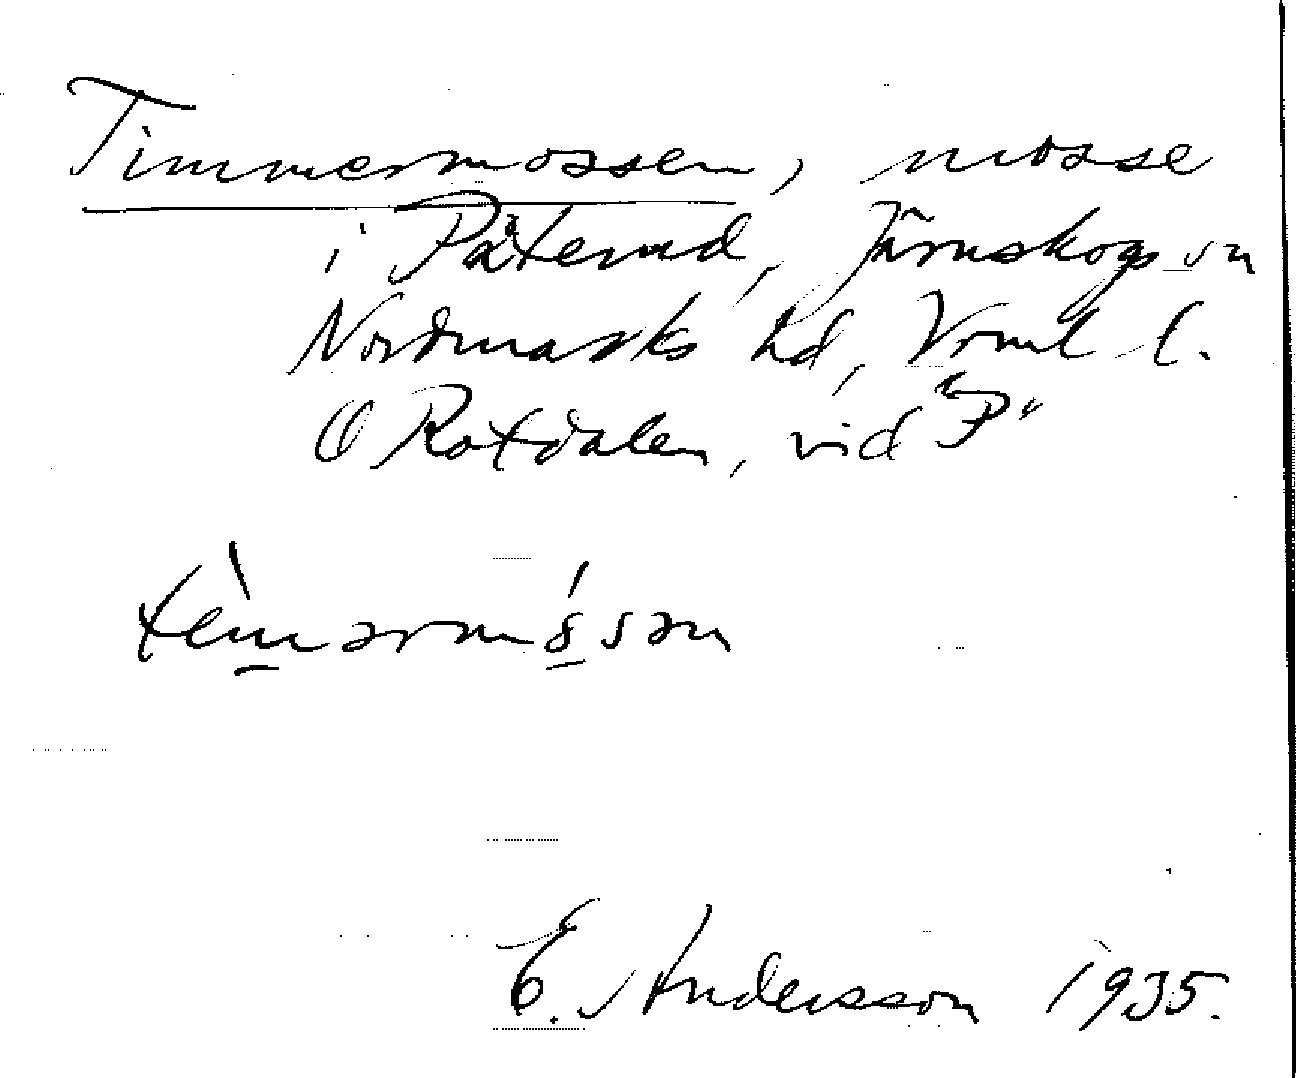 Timmermossen, mosse
i Påterud, Järnskogs sn
Nordmarks hd, Vrml l.
O Rotdalen, vid "P"
tèmərmósən
E. Andersson 1935.